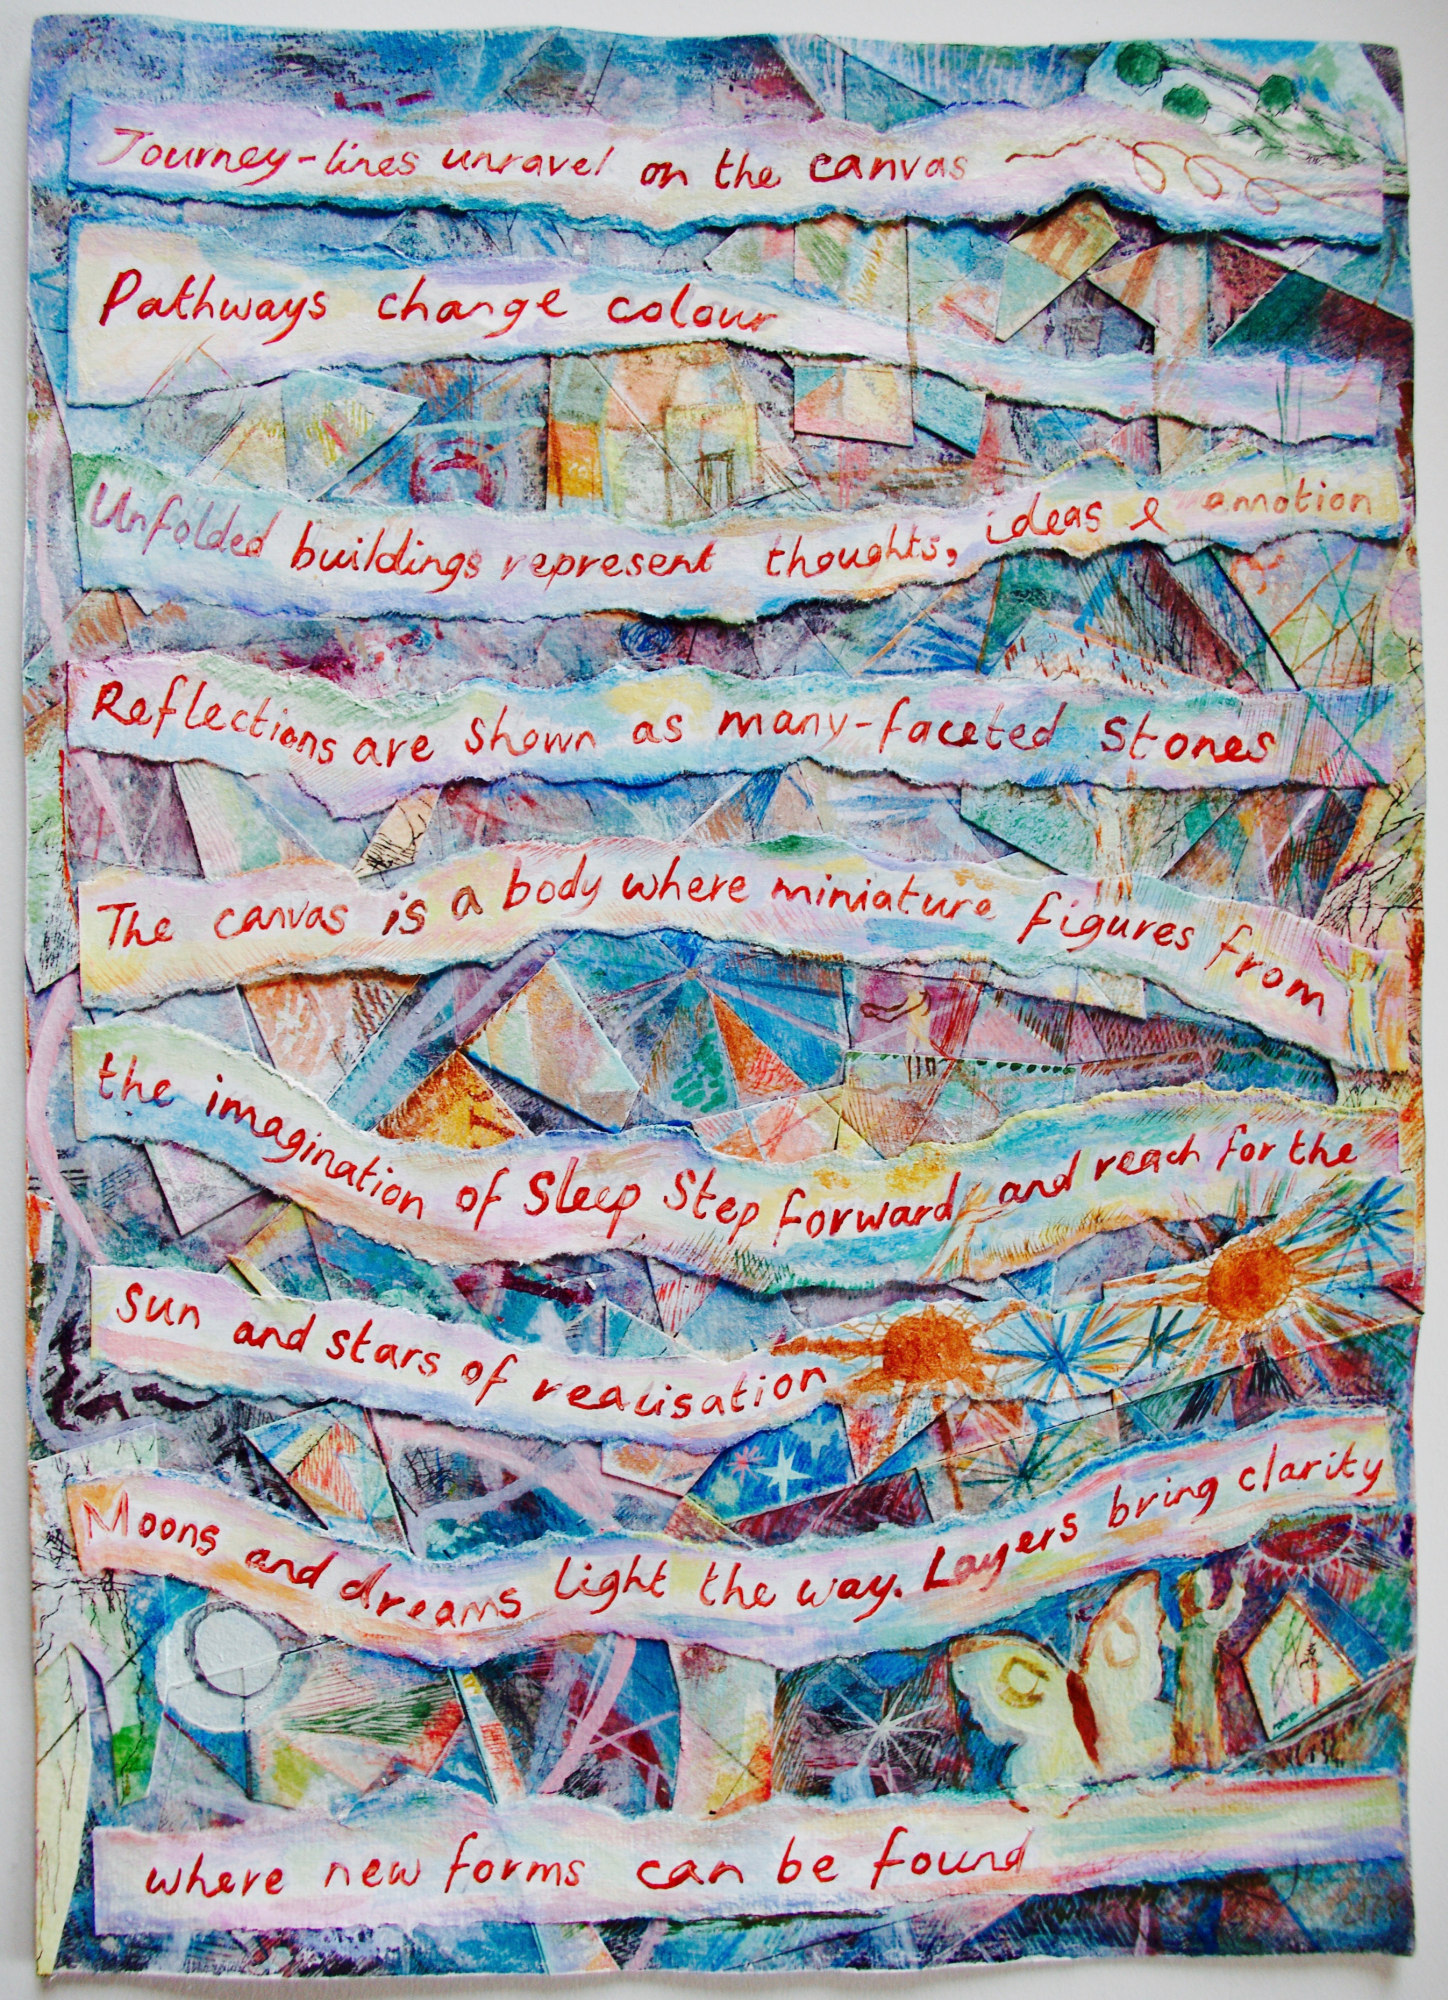 Journey-lines unravel on the canvas
Pathways change colour
Unfolded buildings represent thoughts, ideas & emotion
Reflections are shown as many-faceted stones
The canvas is a body where miniature figures from
the imagination of Sleep Step forward and reach for the
sun and stars of realisation
Moons and dreams light the way. Layers bring clarity
where new forms can be found